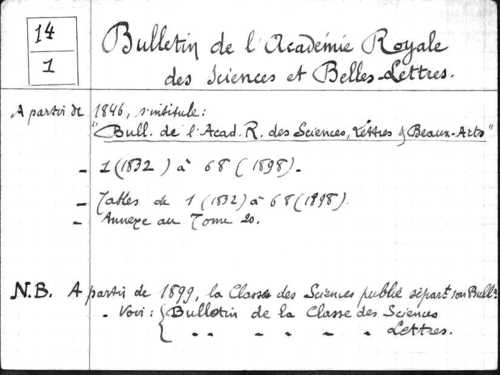 14
1
Bulletin de l'Académie Royale
des Sciences et Belles-Lettres.
A partir de 1846, s'intitule :
"Bull. de l'Acad. R. des Sciences, Lettres & Beaux-Arts"
- 1 (1832) à 68 (1898).-
- Tables de 1 (1832) à 68 (1898).
- Annexe au Tome 20.
N.B. A partir de 1899, la Classe des Sciences publie sépart son Bulln
- Voir : { Bulletin de la Classe des Sciences
" " " " Lettres.